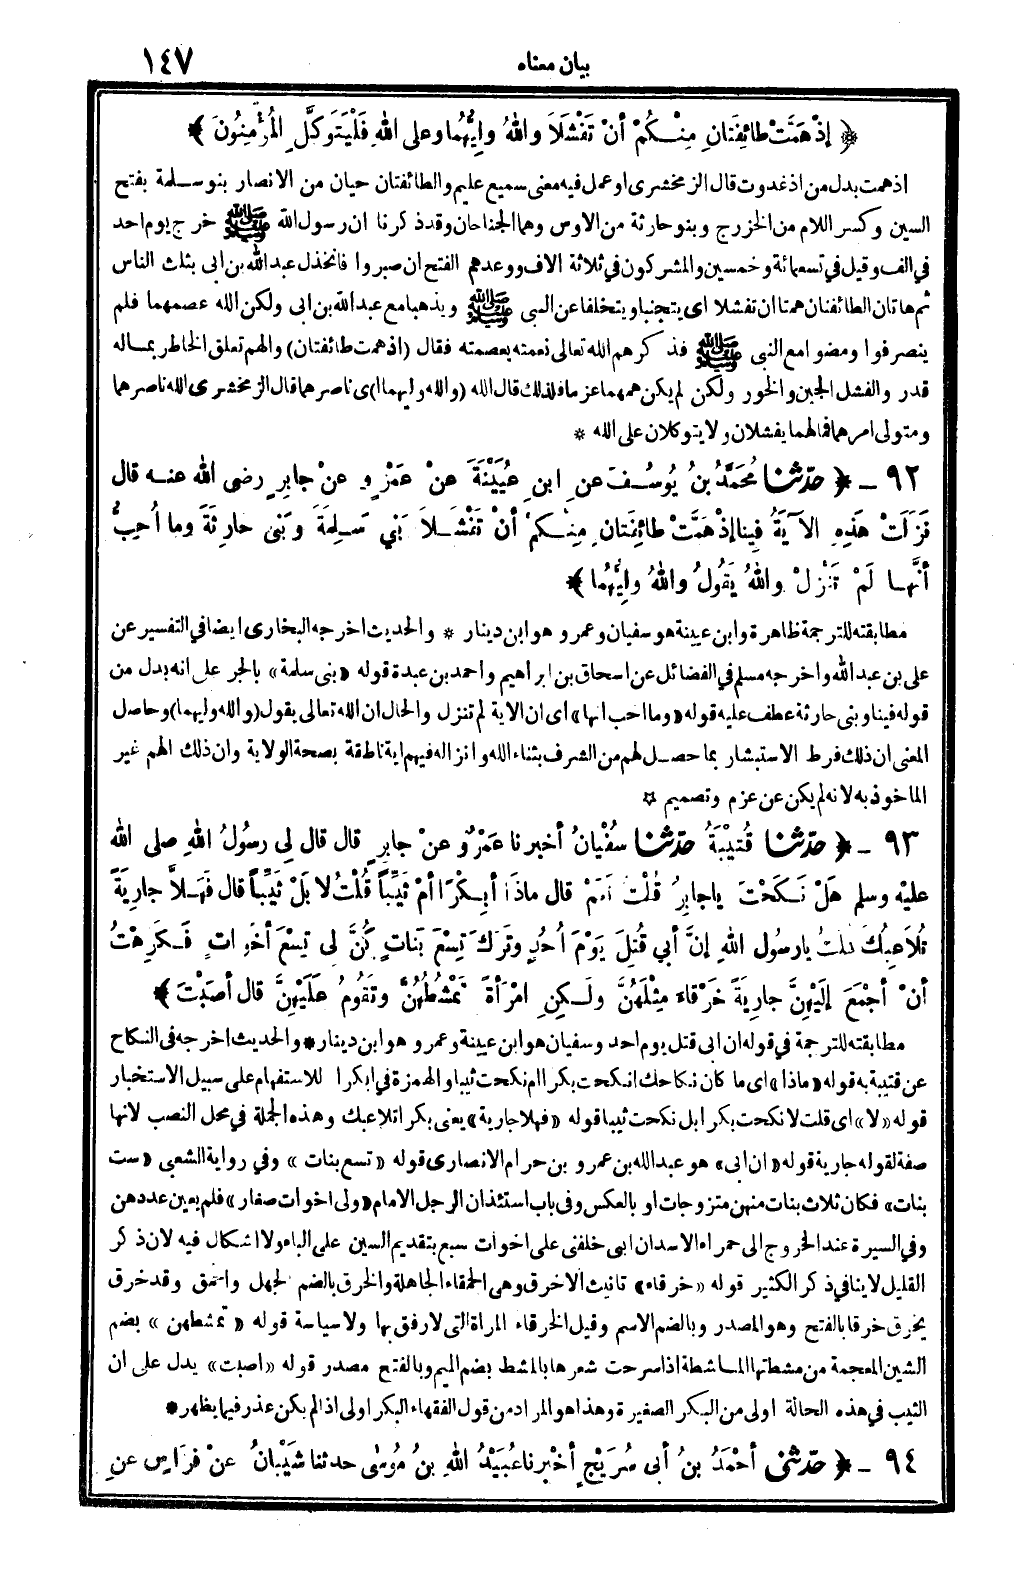 بيان معناه ١٤٧
﴿ إِذْ هَمَّتْ طَائِفَتَانِ مِنْكُمْ أَنْ تَفْشَلَا وَاللهُ وَلِيُّهُمَا وعلى اللهِ فَلْيَتَوَكَّلِ الْمُؤْمِنُونَ ﴾
اذ همت بدل من اذ غدوت قال الزمخشرى او عمل فيه معنى سميع عليم والطائفتان حيان من الانصار بنو سلمة بفتح
السين وكسر اللام من الخزرج وبنو حارثة من الاوس وهما الجناحان وقد ذكرنا ان رسول الله ﷺ خرج يوم احد
في الف وقيل في تسعمائة وخمسين والمشركون في ثلاثة الاف ووعدهم الفتح ان صبروا فانخذل عبد الله بن ابى بثلث الناس
ثم هاتان الطائفتان همتا ان تفشلا اى يتجنبا ويتخلفا عن النبى ﷺ ويذهبا مع عبد الله بن ابى ولكن الله عصمهما فلم
ينصرفوا ومضوا مع النبى ﷺ فذكرهم الله تعالى نعمته بعصمته فقال (اذ همت طائفتان) والهم تعلق الخاطر بماله
قدر والفشل الجبن والخور ولكن لم يكن همهما عزما فلذلك قال الله (والله وليهما) اى ناصرهما قال الزمخشرى الله ناصرهما
ومتولى امرهما فما لهما يفشلان ولا يتوكلان على الله *
٩٢ - ﴿ حدّثنا مُحَمَّدُ بنُ يُوسُفَ عنِ ابنِ عُيَيْنَةَ عنْ عَمْرٍو عنْ جابِرٍ رضى الله عنه قال
نَزَلَتْ هَذِهِ الآيَةُ فِينَا إذْ هَمَّتْ طائِفَتانِ مِنْكمْ أنْ تَفْشَلاَ بَنِي سَلِمَةَ وبَنى حارِثَةَ وما أُحِبُّ
أنَّها لَمْ تَنْزِلْ واللهُ يَقُولُ واللهُ ولِيُّهُما ﴾
مطابقته للترجمة ظاهرة وابن عيينة هو سفيان وعمرو هو ابن دينار * والحديث اخرجه البخارى ايضا في التفسير عن
على بن عبد الله واخرجه مسلم في الفضائل عن اسحاق بن ابراهيم واحمد بن عبدة قوله «بنى سلمة» بالجر على انه بدل من
قوله فينا وبنى حارثة عطف عليه قوله «وما احب انها» اى ان الاية لم تنزل والحال ان الله تعالى يقول (والله وليهما) وحاصل
المعنى ان ذلك فرط الاستبشار بما حصل لهم من الشرف بثناء الله وانزاله فيهم اية ناطقة بصحة الولاية وان ذلك الهم غير
الماخوذ به لانه لم يكن عن عزم وتصميم *
٩٣ - ﴿ حدّثنا قُتَيْبَةُ حدّثنا سُفْيانُ أخبرنا عَمْرٌو عنْ جابِرٍ قال قال لِى رسُولُ اللهِ صلى الله
عليْه وسلم هَلْ نَكَحْتَ ياجابِرُ قُلْتُ نَعَمْ قال ماذَا أبِكْرًا أمْ ثَيِّباً قُلْتُ لا بَلْ ثَيِّباً قال فَهَلاَّ جارِيَةً
تُلاَعِبُكَ قُلْتُ يارسُول اللهِ إنَّ أبي قُتِلَ يَوْمَ أُحُدٍ وتَرَكَ تِسْعَ بَنَاتٍ كُنَّ لِى تِسْعَ أخَوَاتٍ فَكَرِهْتُ
أنْ أجْمَعَ إلَيْهِنَّ جارِيَةً خَرْقَاءَ مِثْلَهُنَّ ولَكِنِ امْرَأةً تَمْشُطُهُنَّ وتَقُومُ عَلَيْهِنَّ قال أصَبْتَ ﴾
مطابقته للترجمة في قوله ان ابى قتل يوم احد وسفيان هو ابن عيينة وعمرو هو ابن دينار * والحديث اخرجه فى النكاح
عن قتيبة به قوله «ماذا» اى ما كان نكاحك انكحت بكرا ام نكحت ثيبا والهمزة في ابكرا للاستفهام على سبيل الاستخبار
قوله «لا» اى قلت لا نكحت بكرا بل نكحت ثيبا قوله «فهلا جارية» يعنى بكرا تلاعبك وهذه الجملة في محل النصب لانها
صفة لقوله جارية قوله «ان ابى» هو عبد الله بن عمرو بن حرام الانصارى قوله «تسع بنات» وفي رواية الشعبي «ست
بنات» فكان ثلاث بنات منهن متزوجات او بالعكس وفى باب استئذان الرجل الامام «ولى اخوات صغار» فلم يعين عددهن
وفي السيرة عند الخروج الى حمراء الاسد ان ابى خلفنى على اخوات سبع بتقديم السين على الباء ولا اشكال فيه لان ذكر
القليل لا ينافي ذكر الكثير قوله «خرقاء» تانيث الاخرق وهى الحمقاء الجاهلة والخرق بالضم الجهل والحمق وقد خرق
يخرق خرقا بالفتح وهو المصدر وبالضم الاسم وقيل الخرقاء المراة التى لا رفق بها ولا سياسة قوله «تمشطهن» بضم
الشين المعجمة من مشطتها الماشطة اذا سرحت شعرها بالمشط بضم الميم وبالفتح مصدر قوله «اصبت» يدل على ان
الثيب في هذه الحالة اولى من البكر الصغيرة وهذا هو المراد من قول الفقهاء البكر اولى اذا لم يكن عذر فيما يظهر *
٩٤ - ﴿ حدّثنى أحْمَدُ بنُ أبى سُرَيْجٍ أخْبرنا عُبَيْدُ اللهِ بنُ مُوسَى حدثنا شَيْبانُ عنْ فِرَاسٍ عنِ